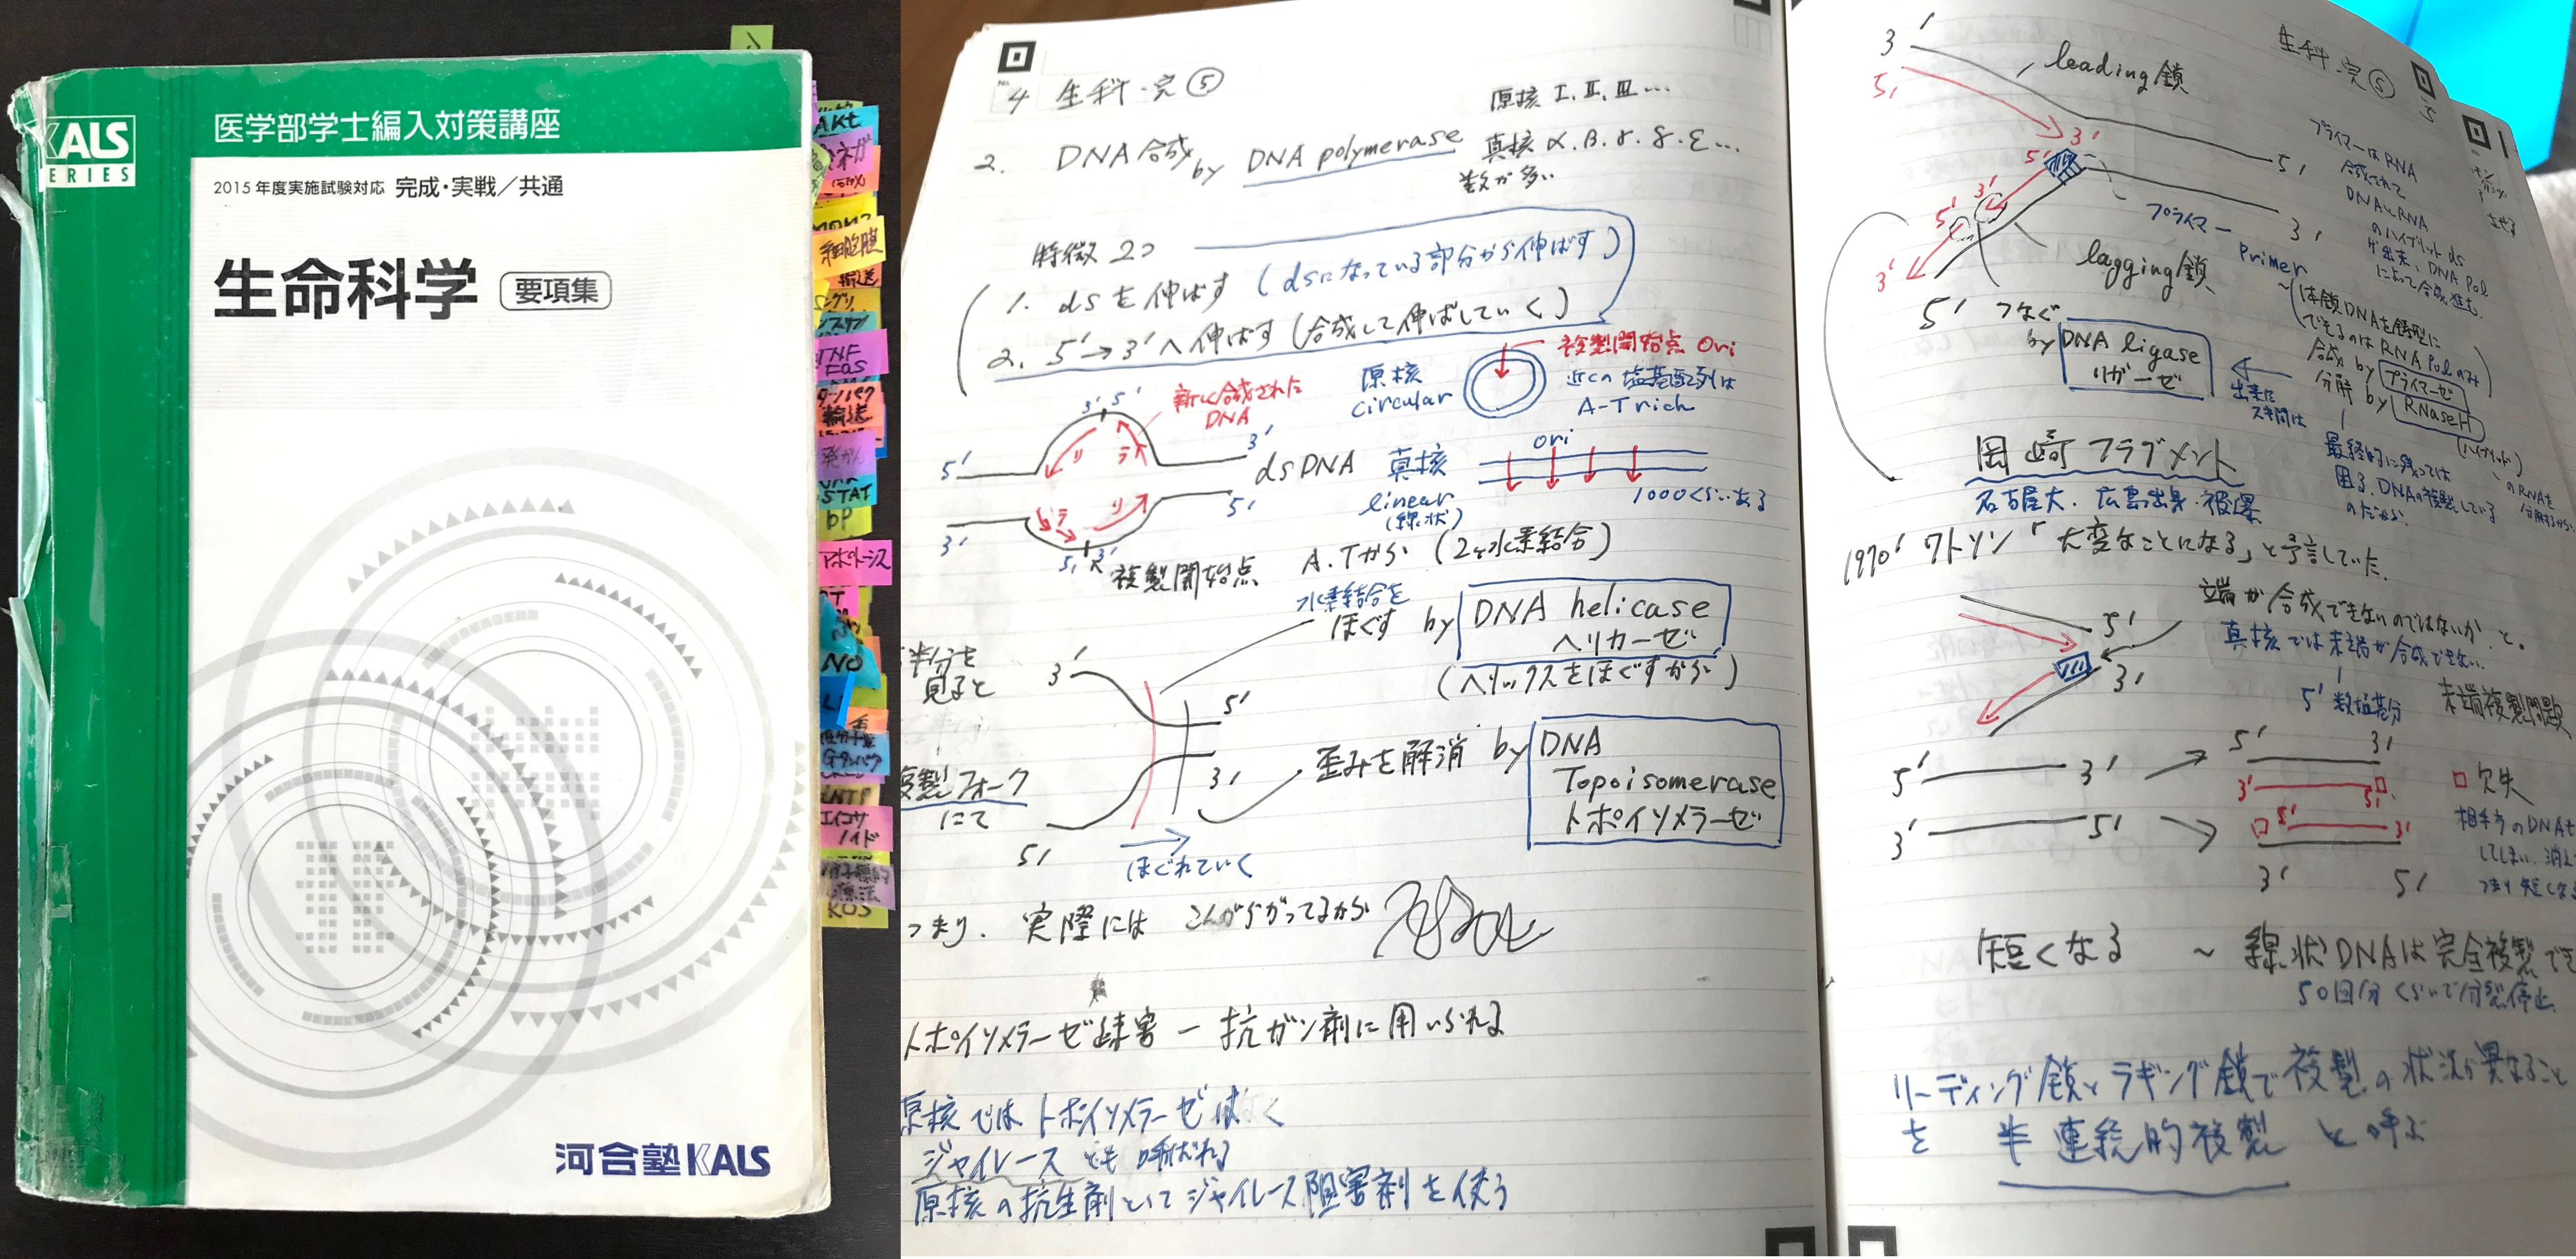 KALS
SERIES
医学部学士編入対策講座
2015年度実施試験対応 完成・実戦/共通
生命科学 要項集
河合塾KALS
AKt
細胞膜
輸送
TNF
輸送
発がん
STAT
bP
アポトーシス
NO
Gタンパク
エイコサ
ノイド
療法
No.
4 生科・完⑤
原核 I. II. III…
2. DNA合成 by DNA polymerase
真核 α.β.γ.δ.ε…
数が多い
特徴2つ
1. dsを伸ばす (dsになっている部分から伸ばす)
2. 5'→3'へ伸ばす (合成して伸ばしていく)
新しく合成された
DNA
原核
circular
複製開始点 Ori
近くの塩基配列は
A-T rich
3' 5'
5' 3'
リ ラ
dsDNA
ラ リ
3' 5'
5' 3'
複製開始点
真核
linear
(線状)
Ori
1000くらいある
A.Tから (2ヶ水素結合)
水素結合を
ほぐす by DNA helicase
ヘリカーゼ
(ヘリックスをほぐすから)
半分を
見ると
3'
5'
3'
5'
複製フォーク
にて
ほぐれていく
歪みを解消 by DNA
Topoisomerase
トポイソメラーゼ
つまり. 実際には こんがらがってるから
トポイソメラーゼ障害 ー 抗ガン剤に用いられる
原核ではトポイソメラーゼは
ジャイレースとも呼ばれる
原核の抗生剤としてジャイレース阻害剤を使う
生科・完⑤
5
3'
5'
leading鎖
3'
5'
5'
3'
5'
3'
3'
5'
プライマー
Primer
lagging鎖
プライマーはRNA
合成されて
DNAとRNA
のハイブリットds
が出来、DNA Pol
によって合成進む
つなぐ
by DNA ligase
リガーゼ
出来た
ス間は
一本鎖DNAを鋳型に
できるのはRNA Polのみ
合成 by プライマーゼ
分解 by RNaseH
(ハイブリット)
のRNAを
分解するから
岡崎フラグメント
名古屋大. 広島出身・被爆
最終的に残っては
困る. DNAの複製している
のだから.
1970' ワトソン「大変なことになる」と予言していた.
端が合成できないのではないか と。
真核では末端が合成できない.
5'
3'
5' 数塩基分
末端複製問題
5' 3'
3' 5'
5' 3'
3' 5'
5' 3'
3' 5'
□ 欠失
相手方のDNAも
短くなる ~ 線状DNAは完全複製でき
50回分くらいで分裂停止
リーディング鎖とラギング鎖で複製の状況が異なること
を 半連続的複製 と呼ぶ